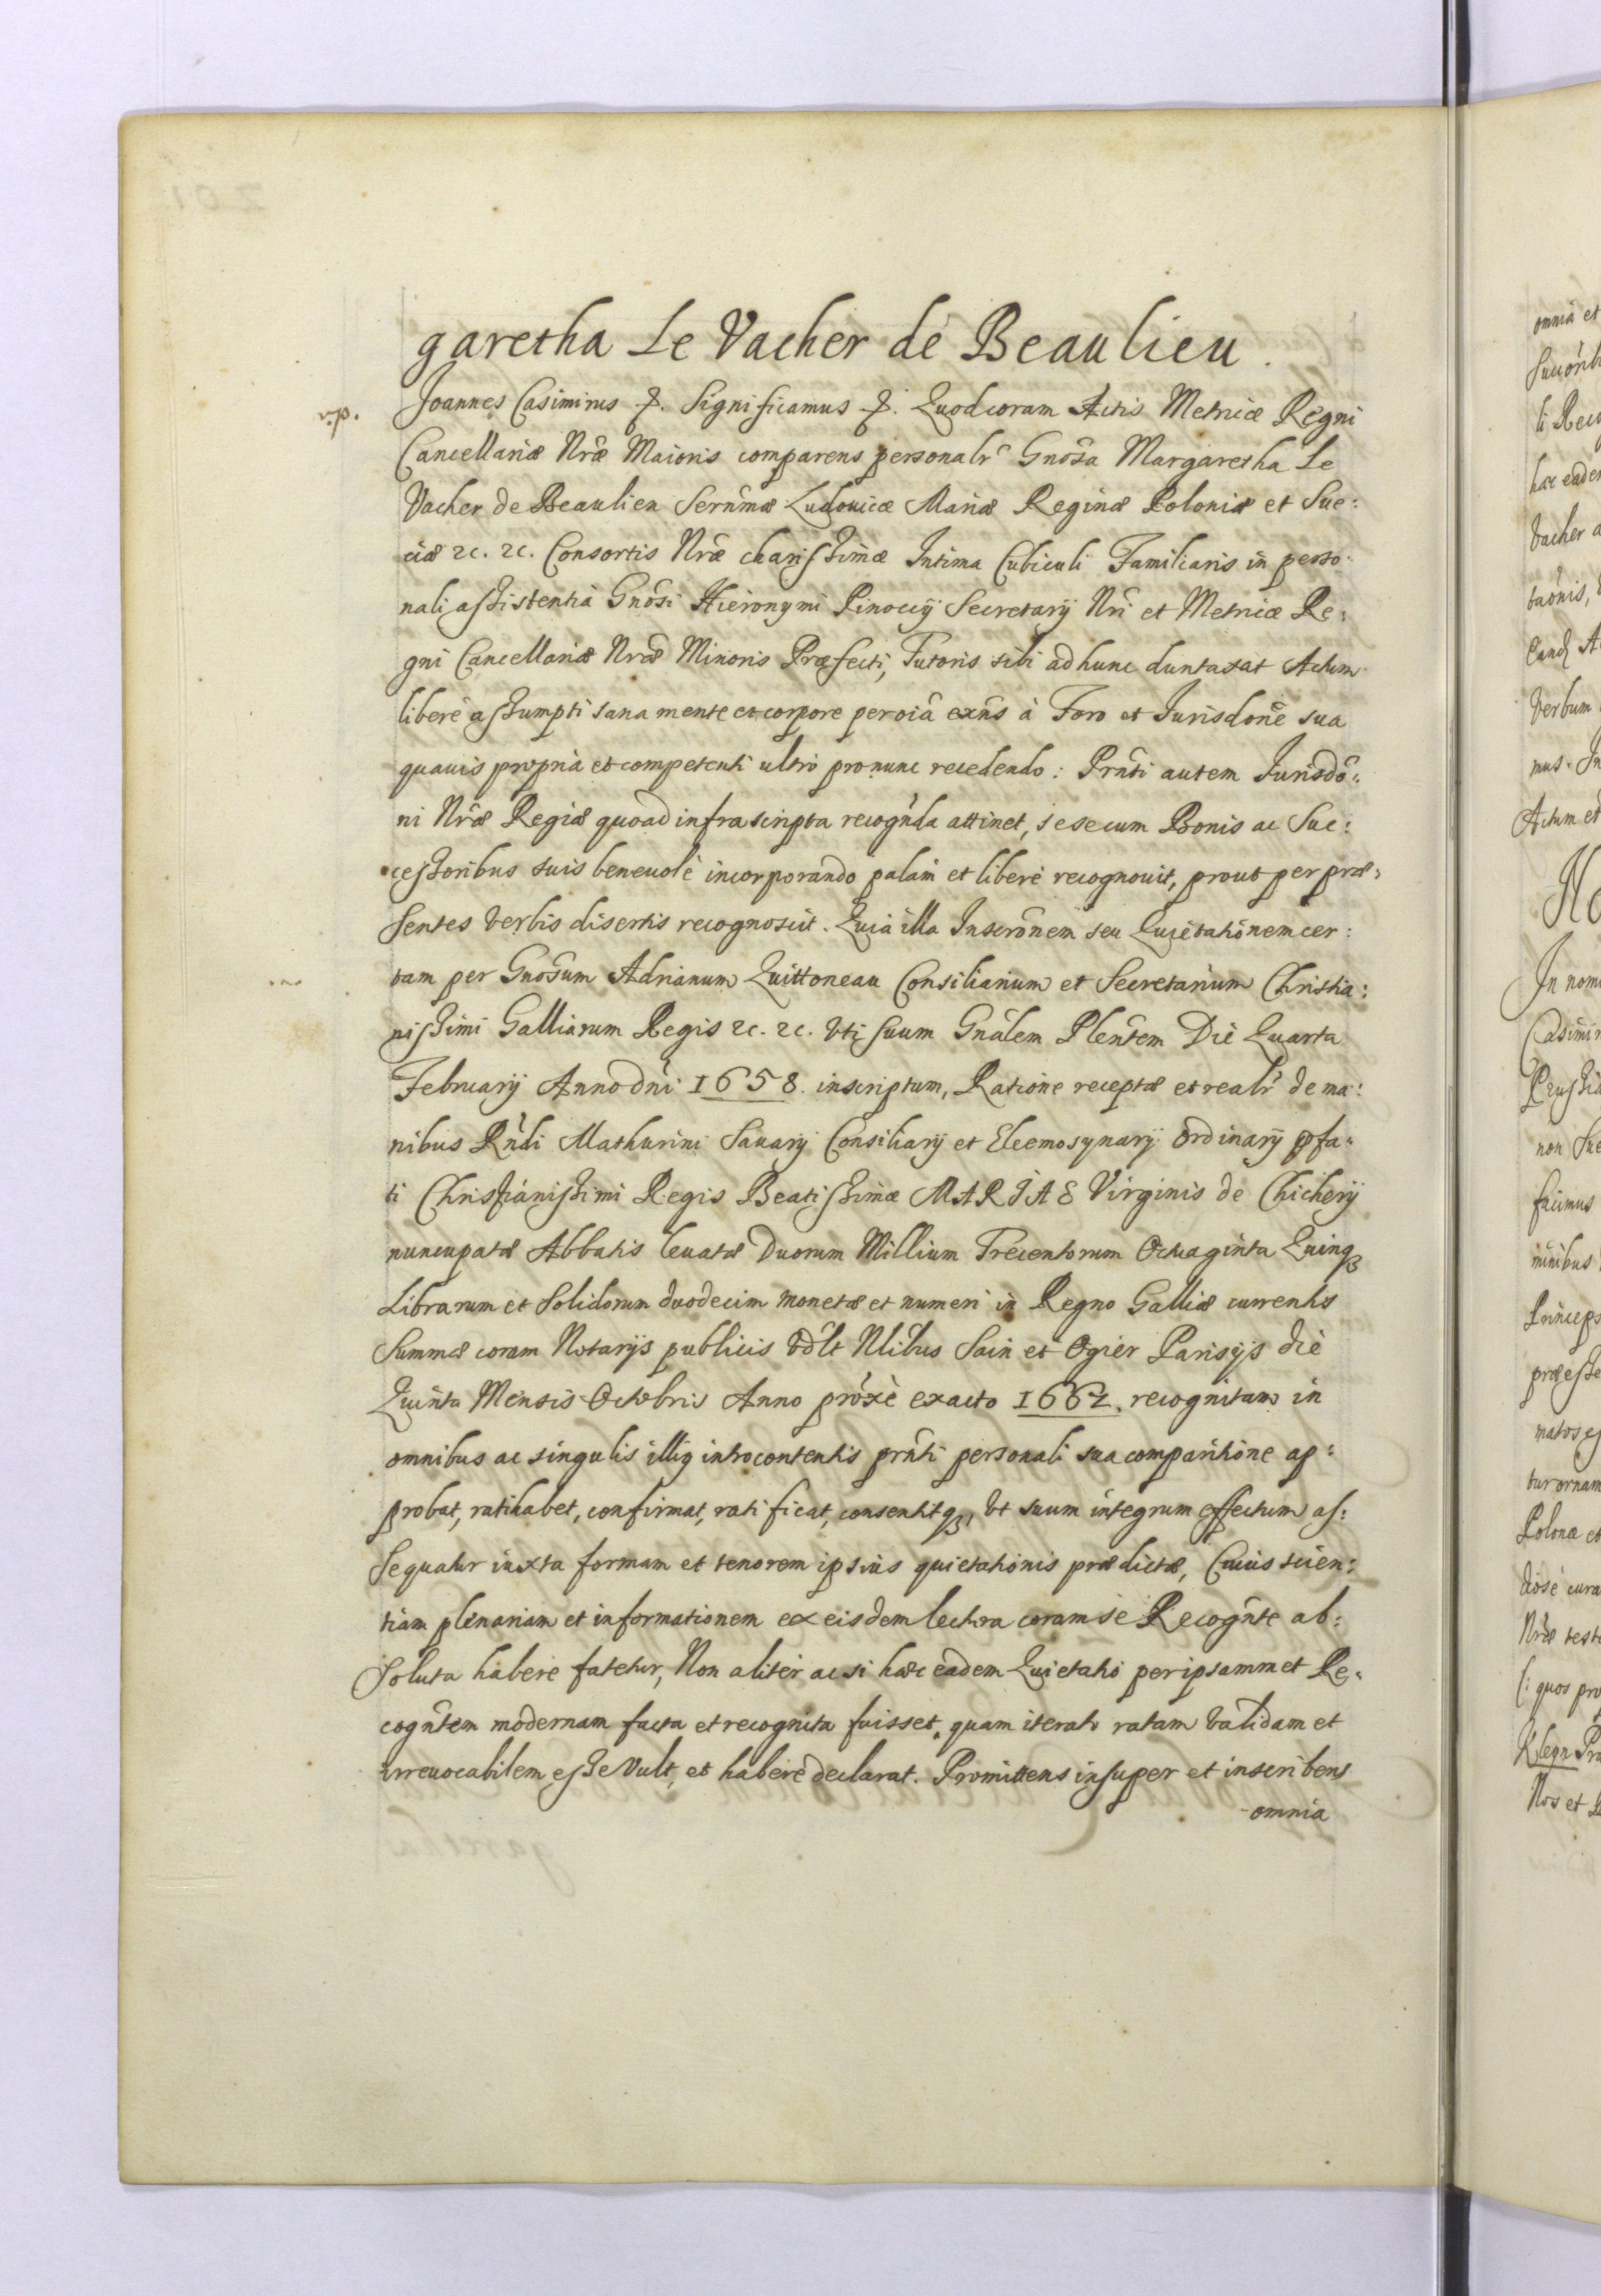 garetha Le Vacher de Beaulieu.
v.p.
Joannes Casimirus &. Significamus &. Quod coram Actis Metricæ Regni
Cancellariæ Nr̃æ Maioris comparens personalr̃ Gnõsa Margaretha Le
Vacher de Beaulieu Serñmæ Ludouicæ Mariæ Reginæ Poloniæ et Sue:
ciæ &c. &c. Consortis Nr̃æ charissimæ Intima Cubiculi Familiaris in perso:
nali assistentia Gnõsi Hieronymi Pinoccij Secretarij Nr̃i et Metricæ Re:
gni Cancellariæ Nr̃æ Minoris Præfecti, Tutoris sibi ad hunc duntaxat Actum
liberè assumpti sana mente et corpore per oĩa exñs à Foro et Jurisdoñe sua
quauis propria et competenti ultrò pro nunc recedendo: Prñti autem Jurisdõ:
ni Nr̃æ Regiæ quoad infrascripta recogñda attinet, sese cum Bonis ac Suc:
cessoribus suis beneuolè incorporando palàm et liberè recognouit, prout per præ:
sentes verbis disertis recognoscit. Quia illa Inscrõnem seu Quietationem cer:
tam per Gnõsum Adrianum Quittoneau Consiliarium et Secretarium Christia:
nissimi Galliarum Regis &c. &c. vti suum Gnãlem Plent̃em Die Quarta
Februarij Anno dñi 1658. inscriptum, Ratione receptæ et realr̃ de ma:
nibus Rñdi Mathurini Sauarij Consiliarij et Eleemosynarij Ordinarij pfa:
ti Christianissimi Regis Beatissimæ MARIAE Virginis de Chicherij
nuncupatæ Abbatis leuatæ Duorum Millium Trecentorum Octuaginta Quinqꝫ
Librarum et Solidorum duodecim monetæ et numeri in Regno Galliæ currentis
Summæ coram Notarijs publicis vdlt Nlibus Sain et Ogier Parisijs die
Quinta Mensis Octobris Anno próxè exacto 1662. recognitam in
omnibus ac singulis illiꝰ introcontentis prñti personali sua comparitione ap:
probat, ratihabet, confirmat, ratificat, consentitqꝫ, vt suum integrum effectum as:
sequatur iuxta formam et tenorem ipsius quietationis prædictæ, Cuius scien:
tiam plenariam et informationem ex eisdem lectura coram se Recogñte ab:
soluta habere fatetur, Non aliter ac si hæc eadem Quietatio per ipsammet Re:
cogñtem modernam facta et recognita fuisset, quam iterato ratam validam et
irreuocabilem esse vult, et habere declarat. Promittens insuper et inscribens
omnia
omnia et
li Recog
hac eadem
Vacher a
Verbum
mus. In
Actum et
In nom
Casimir
Prussiæ
non Sue
facimus
minibus
Princeps
præesse
natos es
tur ornam
Polona et
diose cura
Nr̃æ test
(: quos pro
Nos et